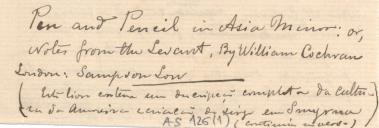 Pen and Pencil in Asia Minor: or,
Notes from the Levant, By William Cochran
London: Sampson Low
(Este livro contem em descripção completa da cultu-
ra da Amoreira e criação do sirgo em Smyrna
AS 126(1) (continúa no verso)